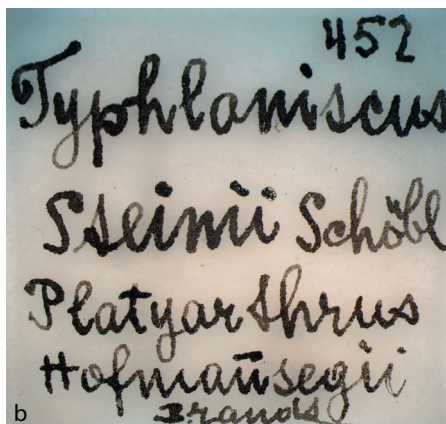 452
Typhloniscus
Steinii Schöbl
Platyarthrus
Hofman̄segii
Brandt
b